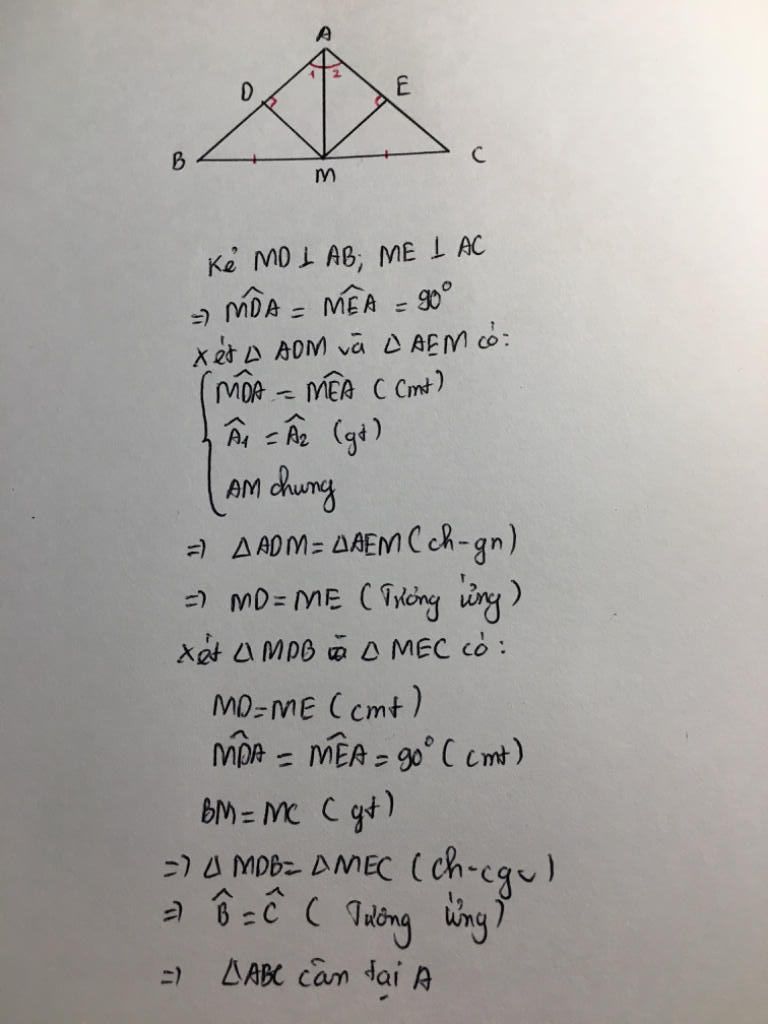 A
1 2
D E
B C
M
Kẻ MD ⊥ AB; ME ⊥ AC
=> M̂DA = M̂EA = 90°
Xét Δ ADM và Δ AEM có:
M̂DA = M̂EA (cmt)
Â1 = Â2 (gt)
AM chung
=> ΔADM = ΔAEM (ch-gn)
=> MD = ME (Tương ứng)
Xét Δ MDB và Δ MEC có:
MD = ME (cmt)
M̂DA = M̂EA = 90° (cmt)
BM = MC (gt)
=> Δ MDB = Δ MEC (ch-cgv)
=> B̂ = Ĉ (Tương ứng)
=> ΔABC cân tại A